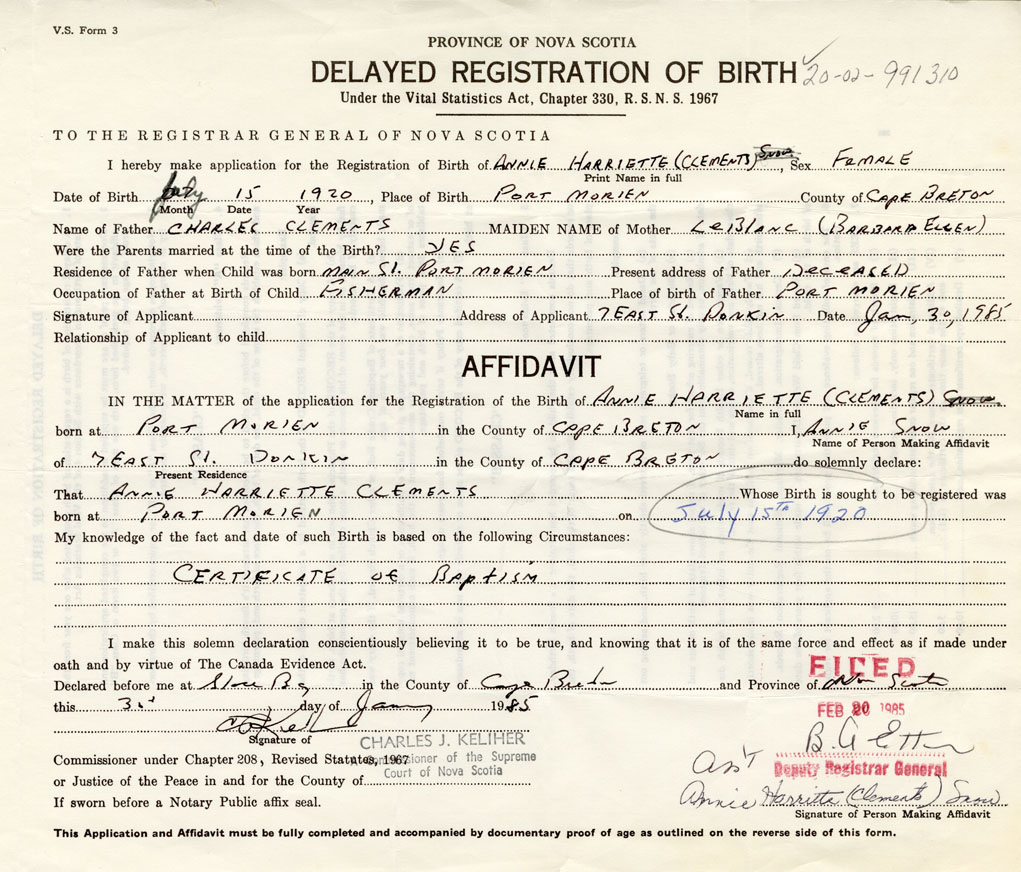 V.S. Form 3
PROVINCE OF NOVA SCOTIA
DELAYED REGISTRATION OF BIRTH 20-02-991310
Under the Vital Statistics Act, Chapter 330, R. S. N. S. 1967
TO THE REGISTRAR GENERAL OF NOVA SCOTIA
I hereby make application for the Registration of Birth of ANNIE HARRIETTE (CLEMENTS) Snow, Sex FEMALE
Print Name in full
Date of Birth July 15 1920, Place of Birth PORT MORIEN County of CAPE BRETON
Month Date Year
Name of Father CHARLES CLEMENTS MAIDEN NAME of Mother LeBlanc (BARBARA ELLEN)
Were the Parents married at the time of the Birth? YES
Residence of Father when Child was born MAIN St. PORT MORIEN Present address of Father DECEASED
Occupation of Father at Birth of Child FISHERMAN Place of birth of Father PORT MORIEN
Signature of Applicant Address of Applicant 7 EAST St. DONKIN Date Jan, 30, 1985
Relationship of Applicant to child
AFFIDAVIT
IN THE MATTER of the application for the Registration of the Birth of ANNIE HARRIETTE (CLEMENTS) SNOW
Name in full
born at PORT MORIEN in the County of CAPE BRETON I, ANNIE SNOW
Name of Person Making Affidavit
of 7 EAST St. DONKIN in the County of CAPE BRETON do solemnly declare:
Present Residence
That ANNIE HARRIETTE CLEMENTS Whose Birth is sought to be registered was
born at PORT MORIEN on July 15th 1920
My knowledge of the fact and date of such Birth is based on the following Circumstances:
CERTIFICATE OF BAPTISM
I make this solemn declaration conscientiously believing it to be true, and knowing that it is of the same force and effect as if made under
oath and by virtue of The Canada Evidence Act.
FILED
Declared before me at Glace Bay in the County of Cape Breton and Province of Nova Scotia
this day of January 1985
FEB 20 1985
Signature of
CHARLES J. KELIHER
Commissioner under Chapter 208, Revised Statutes, 1967
A Commissioner of the Supreme
Court of Nova Scotia
Ass't Deputy Registrar General
or Justice of the Peace in and for the County of
Annie Harritte (Clements) Snow
If sworn before a Notary Public affix seal.
Signature of Person Making Affidavit
This Application and Affidavit must be fully completed and accompanied by documentary proof of age as outlined on the reverse side of this form.